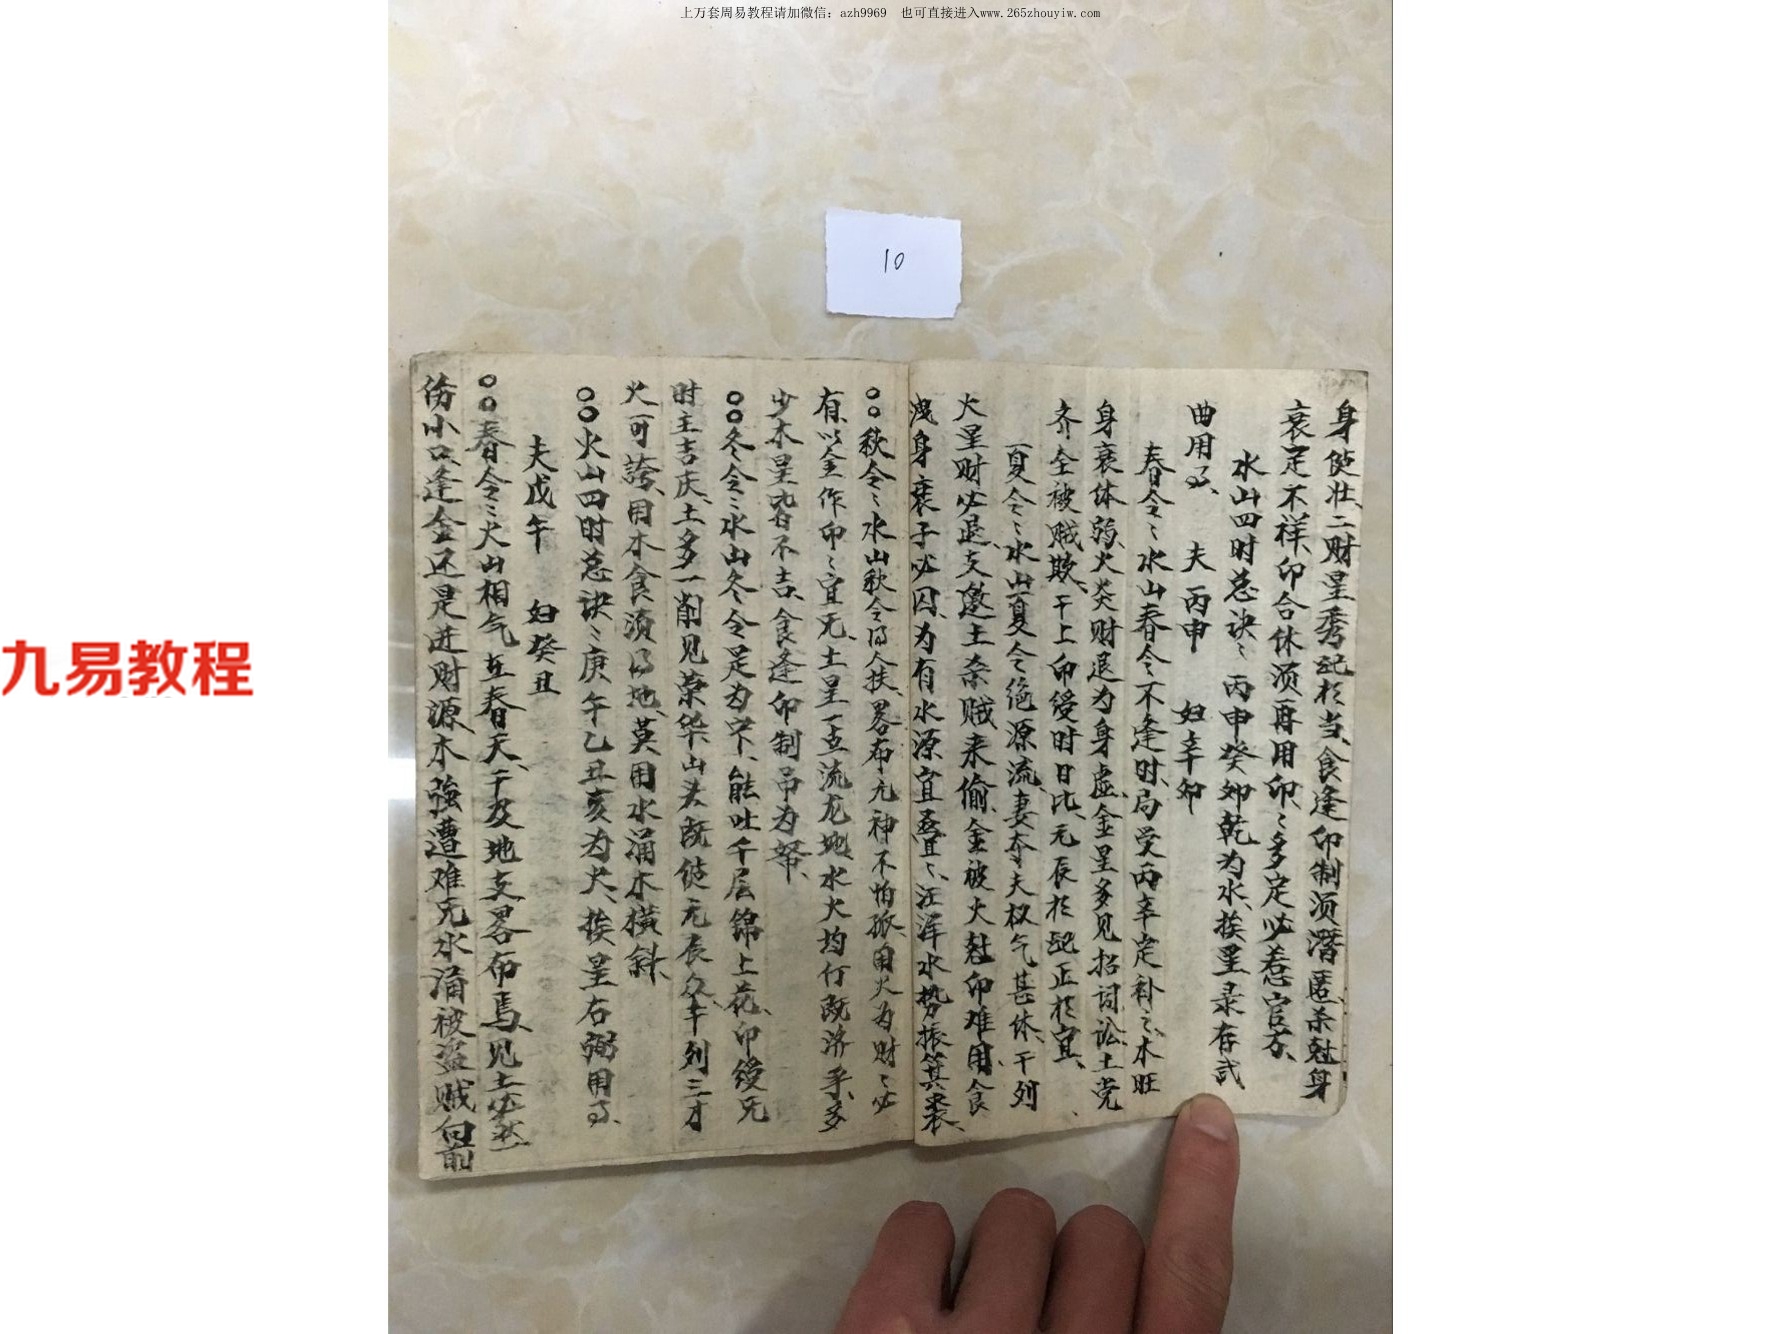 上万套周易教程请加微信: azh9969 也可直接进入www.265zhouyiw.com
10
九易教程
身彼壮、二财星秀起於当、食逢印制须潜匿、杀尅身
衰定不祥、印合休须再用印、〻多定必惹官方、
水山四时总诀〻丙申癸卯乾为水、挨星录存弍
曲用了、 夫丙申 妇辛卯
春令〻水山春令不逢时、局受丙辛定补之、木旺
身衰体弱、火炎财退为身虚、金星多见招词讼、土党
齐全被贼欺、干上印绶时日比、元辰於起正於宜、
夏令〻水山夏令绝源流、妻夺夫权气甚休、干列
火星财必退、支邀土杀贼来偷、金被火尅印难用、食
洩身衰子必囚、为有水源宜叠〻、汪洋水势振箕裘、
○○秋令〻水山秋令得人扶、畧布元神不怕孤、用火为财〻必
有、以金作印〻宜无、土星一点流龙地、水火均行既济乎、多
少木星皆不吉、食逢印制吊为帑、
○○冬令〻水山冬令足为宗、能吐千层锦上花、印绶无
时主吉庆、土多一削见荣华、山头既彼元辰众、干列三才
火可誇、用木食须得地、莫用水涌木横斜、
○○火山四时总诀〻庚午乙丑亥为火、挨星右弼用了、
夫戊午 妇癸丑
○○春令〻火山相气在春天、干及地支畧布焉、见土必然
伤小口、逢金还是进财源、木強遭难无水涌、被盗贼向前